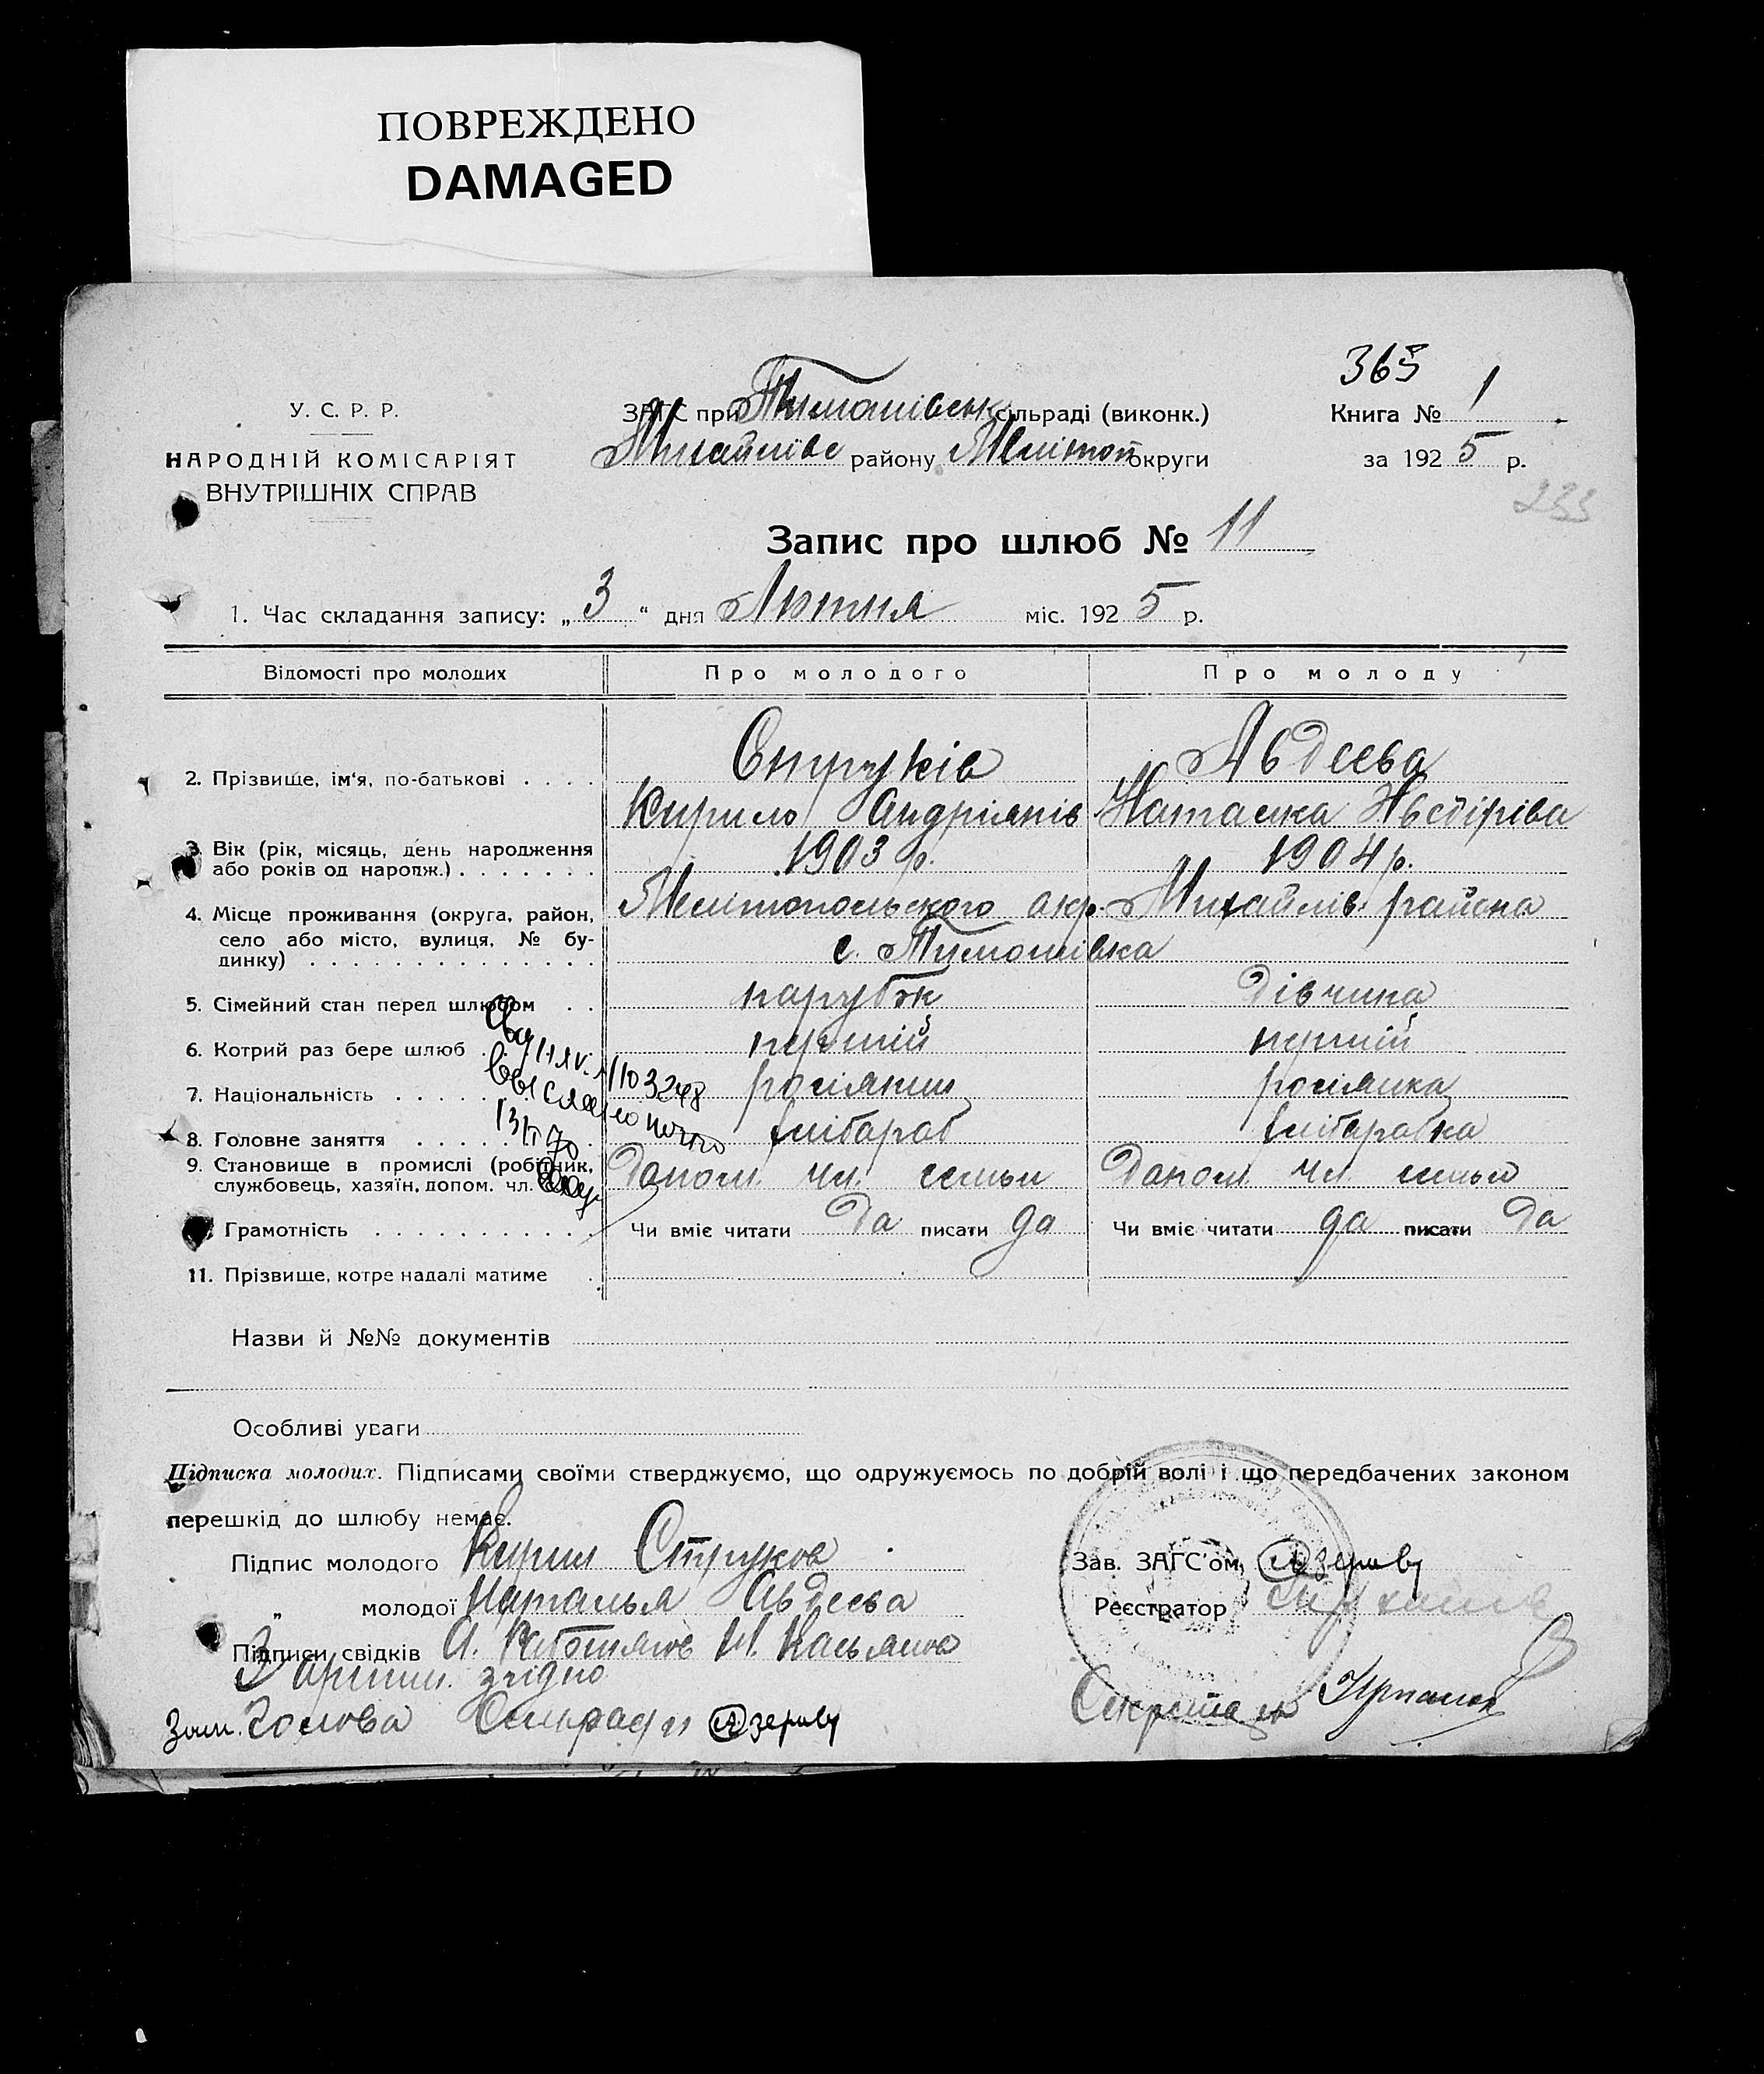 ПОВРЕЖДЕНО
DAMAGED
365
У. С. Р. Р.
НАРОДНІЙ КОМІСАРІЯТ
ВНУТРІШНІХ СПРАВ
ЗАГС при Тимошівськ сільраді (виконк.)
Михайлівс району Мелітоп округи
Книга № 1
за 1925 р.
233
Запис про шлюб № 11
1. Час складання запису: „ 3 “ дня Лютня міс. 1925 р.
Відомості про молодих Про молодого Про молоду
2. Прізвище, ім'я, по-батькові . . . . Струків Авдєєва
Кирило Андріянів Наталка
3. Вік (рік, місяць, день народження
або років од народж.) . . . . . . . 1903 р. 1904 р.
4. Місце проживання (округа, район, Мелітопольского окр. Михайлів. района
село або місто, вулиця, № бу-
динку) . . . . . . . . . . . . . . с. Тимошівка
5. Сімейний стан перед шлюбом . . парубок дівчина
6. Котрий раз бере шлюб . перший перший
7. Національність . . . . . росіянин росіянка
8. Головне заняття . . . . . . хлібароб хлібаробка
9. Становище в промислі (робітник,
службовець, хазяїн, допом. чл. Допом. чл. семьи Допом. чл. семьи
Грамотність . . . . . . . . . . Чи вміє читати да писати да Чи вміє читати да писати да
11. Прізвище, котре надалі матиме
103248
выслано
Назви й №№ документів
Особливі уваги
Підписка молодих. Підписами своїми стверджуємо, що одружуємось по добрій волі і що передбачених законом
перешкід до шлюбу немає.
Підпис молодого Кирил Струков
Зав. ЗАГС'ом
„ молодої Наталья Авдеева
Реєстратор
Підписи свідків А.
З згідно
Зам. Голова Сільради
Секретарь